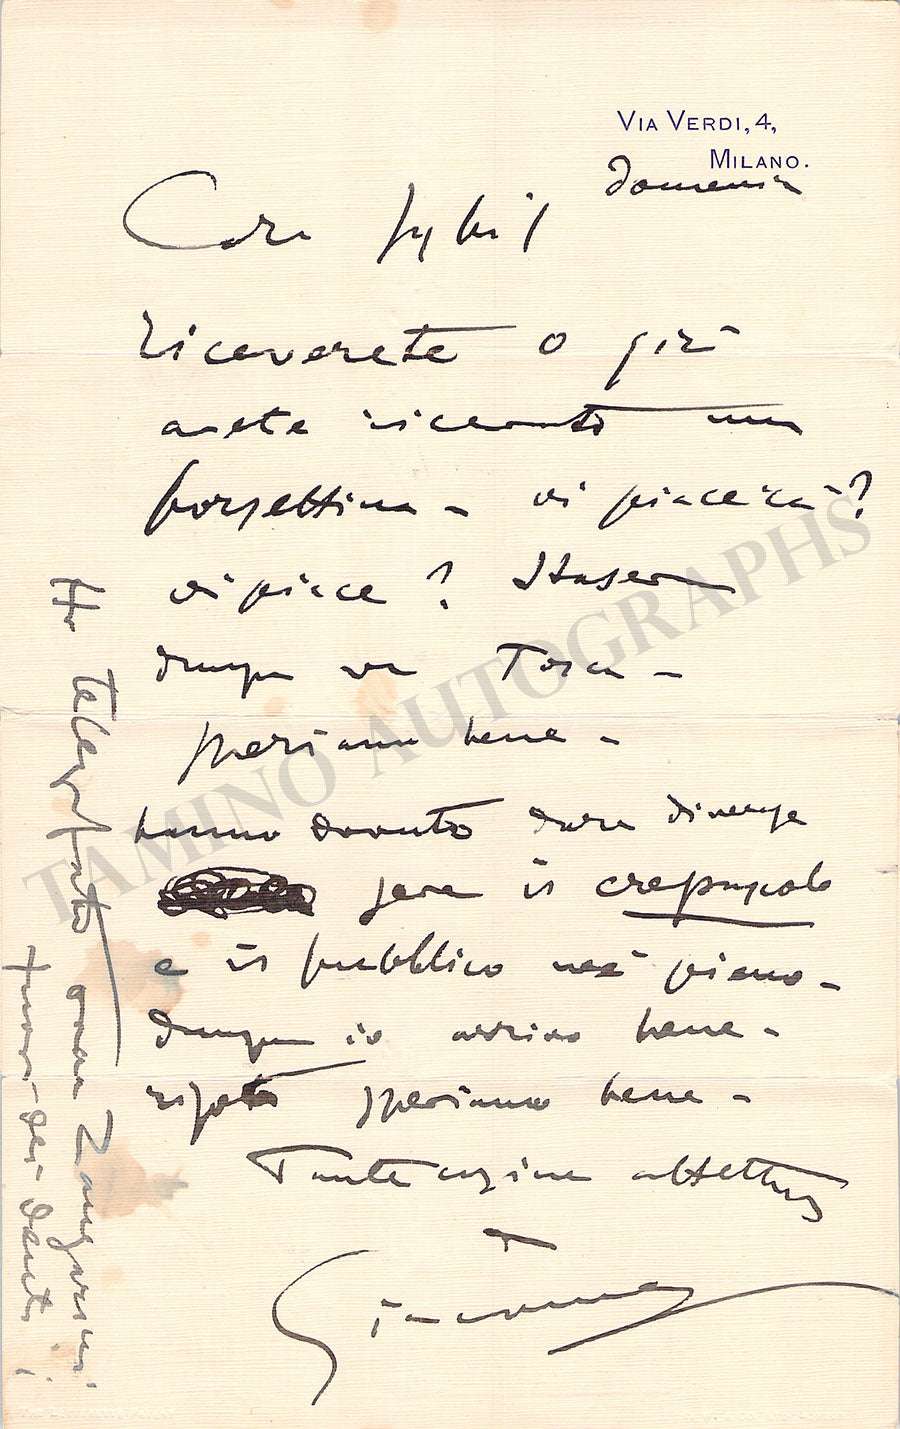 VIA VERDI, 4,
MILANO.
domenica
Cara Sybil
riceverete o già
avete ricevuto una
borsettina – vi piacerà?
vi piace? Stasera
dunque va Tosca –
speriamo bene –
hanno dovuto dare diverse
sere il crepuscolo
e il pubblico ne è pieno –
dunque io arrivo bene –
ripeto speriamo bene –
Tante cose affettuose
Giacomo
Ho telegrafato
Zangarini
TAMINO AUTOGRAPHS